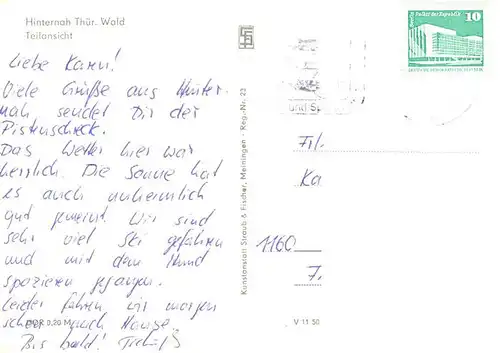 Hinternah Thür. Wald
Teilansicht
Liebe Karen!
Viele Grüße aus Hinter-
nah sendet Dir der
Pistenschreck.
Das Wetter hier war
herrlich. Die Sonne hat
es auch unheimlich
gut gemeint. Wir sind
sehr viel Ski gefahren
und mit dem Hund
spazieren gegangen.
Leider fahren wir morgen
schon nach Hause.
DDR 0,20 M
Bis bald!
Kunstanstalt Straub & Fischer, Meiningen · Reg.-Nr. 22
Palast der Republik
10
und
Frl.
Ka
1160
7.
V 11 50